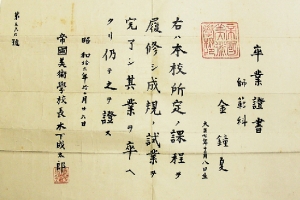 卒業證書
師範科
金鐘夏
大正七年十月八日生
右ハ本校所定ノ課程ヲ
履修シ成規ノ試業ヲ
完了シ其業ヲ卒ヘ
タリ仍テ之ヲ證ス
昭和十六年十二月廿八日
帝國美術學校長木下成太郎